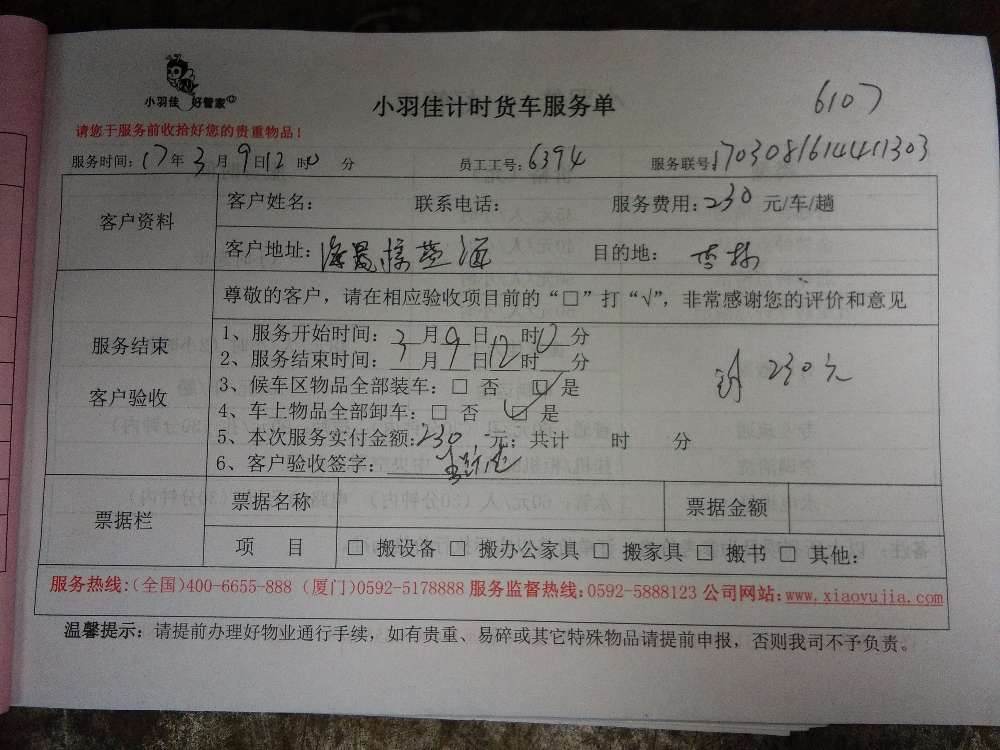 小羽佳 好管家
小羽佳计时货车服务单
6107
请您于服务前收拾好您的贵重物品！
服务时间：17年3月9日12时0分 员工工号：6394 服务联号：1703081614411303
客户资料
客户姓名： 联系电话： 服务费用：230元/车/趟
客户地址： 目的地：杏林
服务结束
客户验收
尊敬的客户，请在相应验收项目前的“□”打“√”，非常感谢您的评价和意见
1、服务开始时间：3月9日 时0分
2、服务结束时间：3月9日12时 分
3、候车区物品全部装车：□ 否 □ 是
4、车上物品全部卸车：□ 否 □ 是
5、本次服务实付金额：230元；共计 时 分
6、客户验收签字：
230元
票据栏
票据名称 票据金额
项 目 □ 搬设备 □ 搬办公家具 □ 搬家具 □ 搬书 □ 其他：
服务热线：(全国)400-6655-888 (厦门)0592-5178888 服务监督热线：0592-5888123 公司网站：www.xiaoyujia.com
温馨提示：请提前办理好物业通行手续，如有贵重、易碎或其它特殊物品请提前申报，否则我司不予负责。